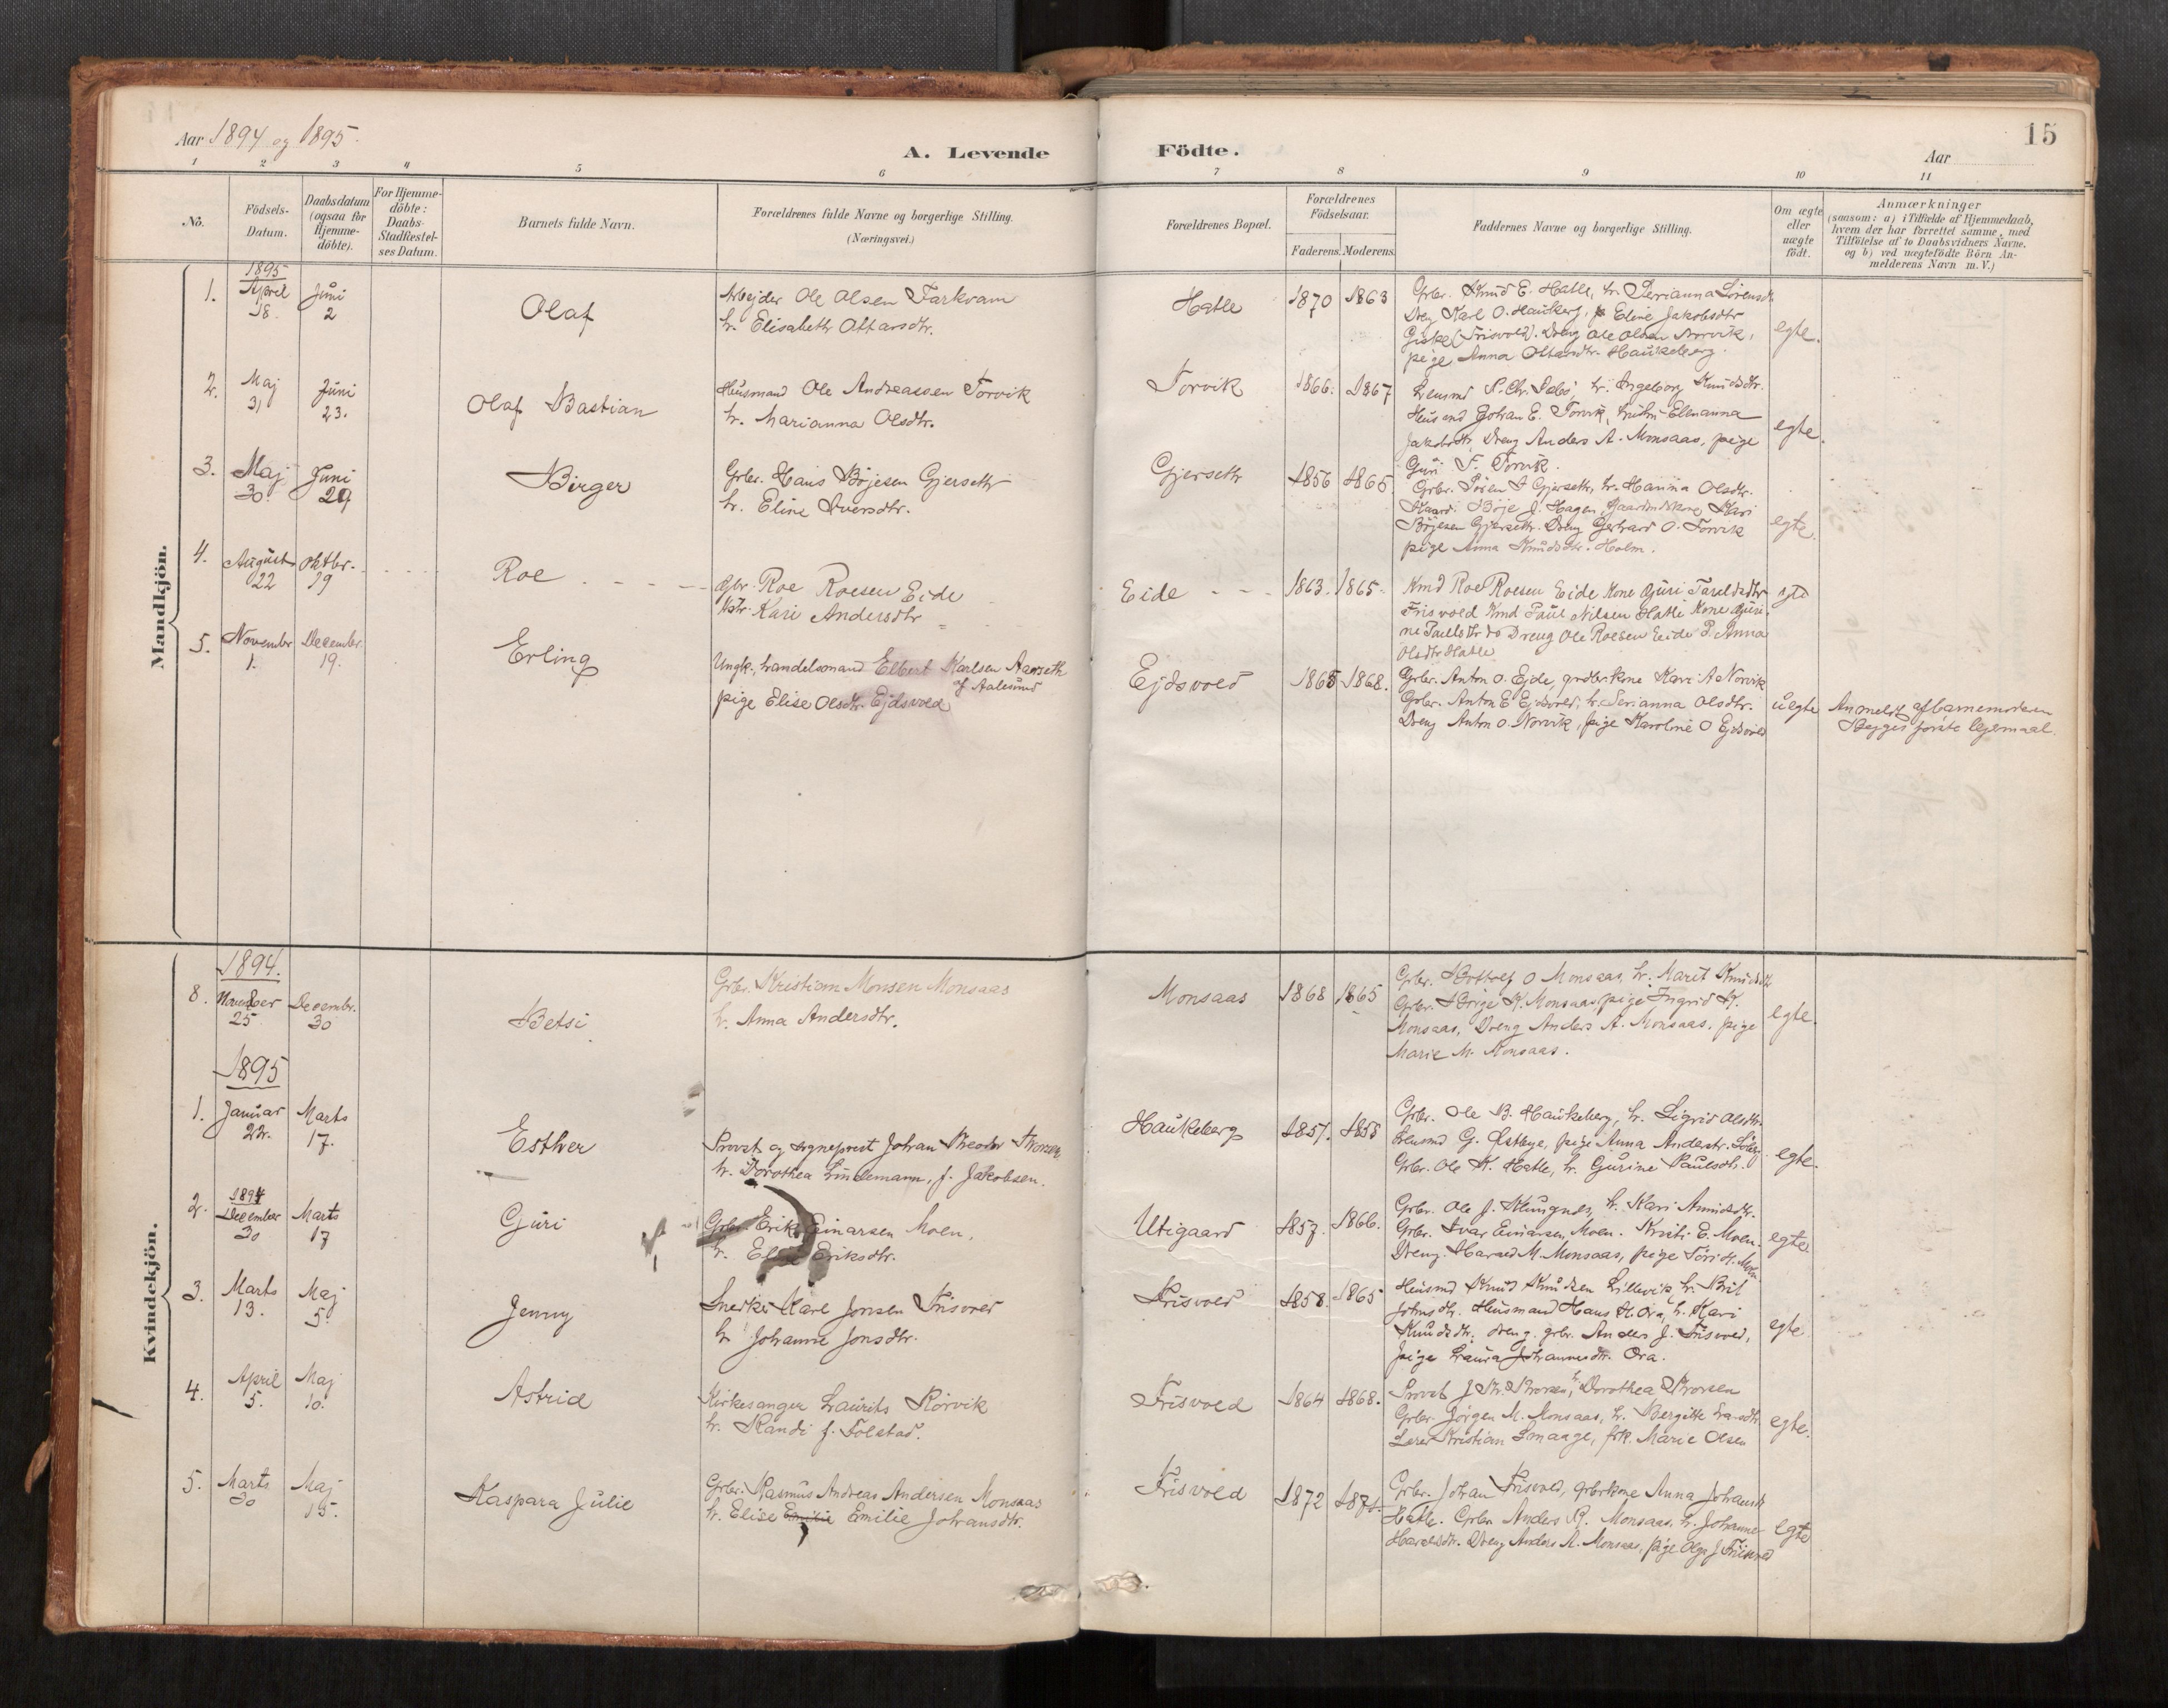 15
Aar 1894 og 1895.
A. Levende Födte.
Aar
1 2 3 4 5 6 7 8 9 10 11
No.
Födsels-Datum.
Daabsdatum (ogsaa for Hjemme-döbte).
For Hjemme-döbte: Daabs-Stadfæstel-ses Datum.
Barnets fulde Navn.
Forældrenes fulde Navne og borgerlige Stilling.
(Næringsvei.)
Forældrenes Bopæl.
Forældrenes Födselsaar.
Faderens. Moderens.
Faddernes Navne og borgerlige Stilling.
Om ægte eller uægte födt.
Anmærkninger
(saasom: a) i Tilfælde af Hjemmedaab, hvem der har forrettet samme, med Tilföielse af to Daabsvidners Navne. og b) ved uægtefödte Börn An-melderens Navn m. V.)
Mandkjön.
1895
1. April 18. Juni 2 Olaf
Arbejder Ole Olsen Farkvam
h. Elisabeth Ottarsdtr.
Hatle 1870 1863
Grbr. Knud E. Hatle, h. Perianna Sörensdt
Dreng Karl O. Haukeberg, p Eline Jakobsdtr
Giske (Frisvold). Dreng Ole Olsen Norvik,
pige Anna Ottarsdtr. Haukeberg.
egte.
2. Maj 31 Juni 23. Olaf Bastian
Husmand Ole Andreassen Torvik
h. Marianna Olsdtr.
Torvik 1866. 1867
h. Ingeborg Knudsdtr.
Husmd Johan E. Torvik, Ellenanna
Jakobsdtr Dreng Anders A. Monsaas, pige
Guri F. Torvik.
egte.
3. Maj 30. Juni 29 Birger
Grbr. Hans Bøjesen Gjerseth
h. Eline Iversdtr.
Gjerseth 1856 1865
Grbr. Sören I Gjerseth, h. Hanna Olsdtr.
Bøje J. Hagen, Kari
Bøjesen Gjerseth. Dreng Gerhard O. Torvik
pige Anna Knudsdtr. Holm.
egte.
4. August 22 Oktbr. 19 Roe
Gbr. Roe Roesen Eide
Kari Andersdtr
Eide 1863. 1865.
Kmd Roe Roesen Eide Kone Guri
Frisvold Kmd Paul Nilsen Hatle Kone Guri-
ne Paulsdtr do Dreng Ole Roesen Eide P. Anna
Olsdtr Hatle
5. Novembr 1. Decembr 19. Erling
Ungk., handelsmand Elbert Karlsen Aarseth
af Aalesund
pige Elise Olsdtr. Ejdsvold
Ejdsvold 1865 1868.
Grbr. Anton O. Ejde, grdbr.kone Kari A Norvik
Grbr. Anton E Ejdsvold, h. Serianna Olsdtr.
Dreng Anton O. Norvik, pige Karoline O Ejdsvold
uegte
Anmeldt af barnemoderen
Begges første lejermaal.
Kvindekjön.
1894.
8. November 25 Decembr. 30 Betsi
Grbr. Kristian Monsen Monsaas
h. Anna Andersdtr.
Monsaas 1868 1865
Grbr. Bottolf O Monsaas, h. Marit Knudsdt
Grbr. Börge K. Monsaas, pige Ingrid K.
Monsaas, Dreng Anders A. Monsaas, pige
Marie M. Monsaas.
egte.
1895
1. Januar 22. Marts 17. Esther
Provst og sogneprest Johan Thorsen
h. Dorothea Lindemann, f. Jakobsen.
Haukeberg 1857. 1858
Grbr. Ole B. Haukeberg, h. Sigrid Olsdtr.
Lensmd G. Østbye, pige Anna Andersdtr.
Grbr. Ole K. Hatle, h. Gurine Paulsdtr.
egte.
1894
2. December 30 Marts 17 Guri
Grbr. Erik Einarsen Moen,
h. Eriksdtr.
Utigaard 1857. 1866.
Grbr. Ole J. h. Kari Amundsdtr.
Grbr. Ivar Einarsen Moen. Kristi E. Moen.
Dreng Harald M. Monsaas, pige
egte
3. Marts 13. Maj 5. Jenny
Snedker Karl Jonsen Frisvold
h. Johanne Jonsdtr.
Frisvold 1858. 1865
Husmd Knud Knudsen Lillevik, h. Brit
Johnsdtr. Husmand Hans H. Ora, h. Kari
Knudsdtr, dreng. grbr. Anders J. Frisvold,
pige Laura Johannesdtr. Ora.
egte
4. April 5. Maj 10. Astrid
Kirkesanger Laurits Rörvik
h. Randi f. Folstad.
Frisvold 1864 1868.
Provst J Thorsen, h. Dorothea Thorsen
Grbr. Jörgen M. Monsaas, h. Bergitte
Lærer Kristian Smaage, frk. Marie Olsen
egte.
5. Marts 30 Maj 15. Kaspara Julie
Grbr. Rasmus Andreas Andersen Monsaas
h. Elise Emilie Emilie Johansdtr.
Frisvold 1872 1871.
Grbr. Johan Frisvold, grbrkone Anna Johansdt
Hatle. Grbr. Anders R. Monsaas, h. Johanne
Haraldsdtr. Dreng Anders A. Monsaas, pige Olga J Frisvold
egte